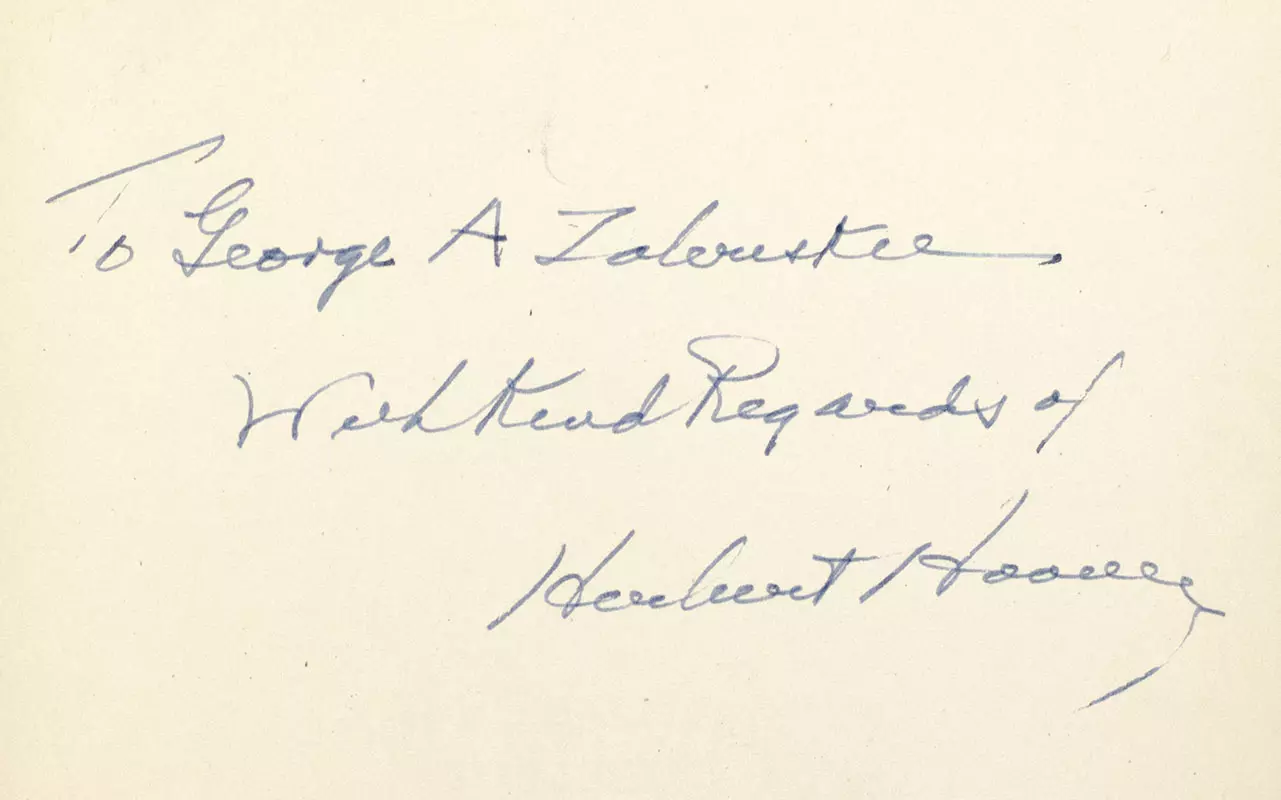 To George A Zabriskie
With Kind Regards of
Herbert Hoover